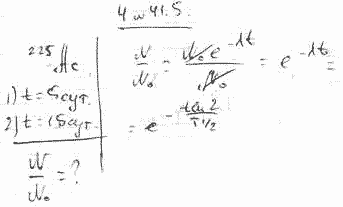 4 ш 41.5.
²²⁵Ac
1) t = 5 сут.
2) t = 15 сут.
N/N₀ = ?
N/N₀ = N₀e^(-λt)/N₀ = e^(-λt) =
= e^(-t ln 2/T 1/2)